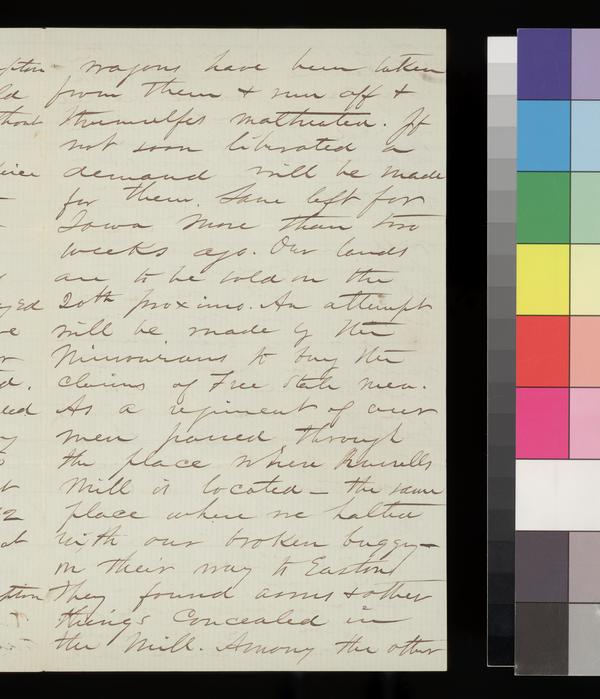 wagons have been taken
from them & run off &
themselfes maltreated. If
not soon liberated a
demand will be made
for them. Lane left for
Iowa more than two
weeks ago. Our lands
are to be sold on the
20th proximo. An attempt
will be made by the
Missourians to buy the
claims of Free State men.
As a regiment of our
men passed through
the place where
Mill is located – the same
place where we halted
with our broken buggy –
on their way to Easton
they found arms & other
things concealed in
the Mill. Among the other